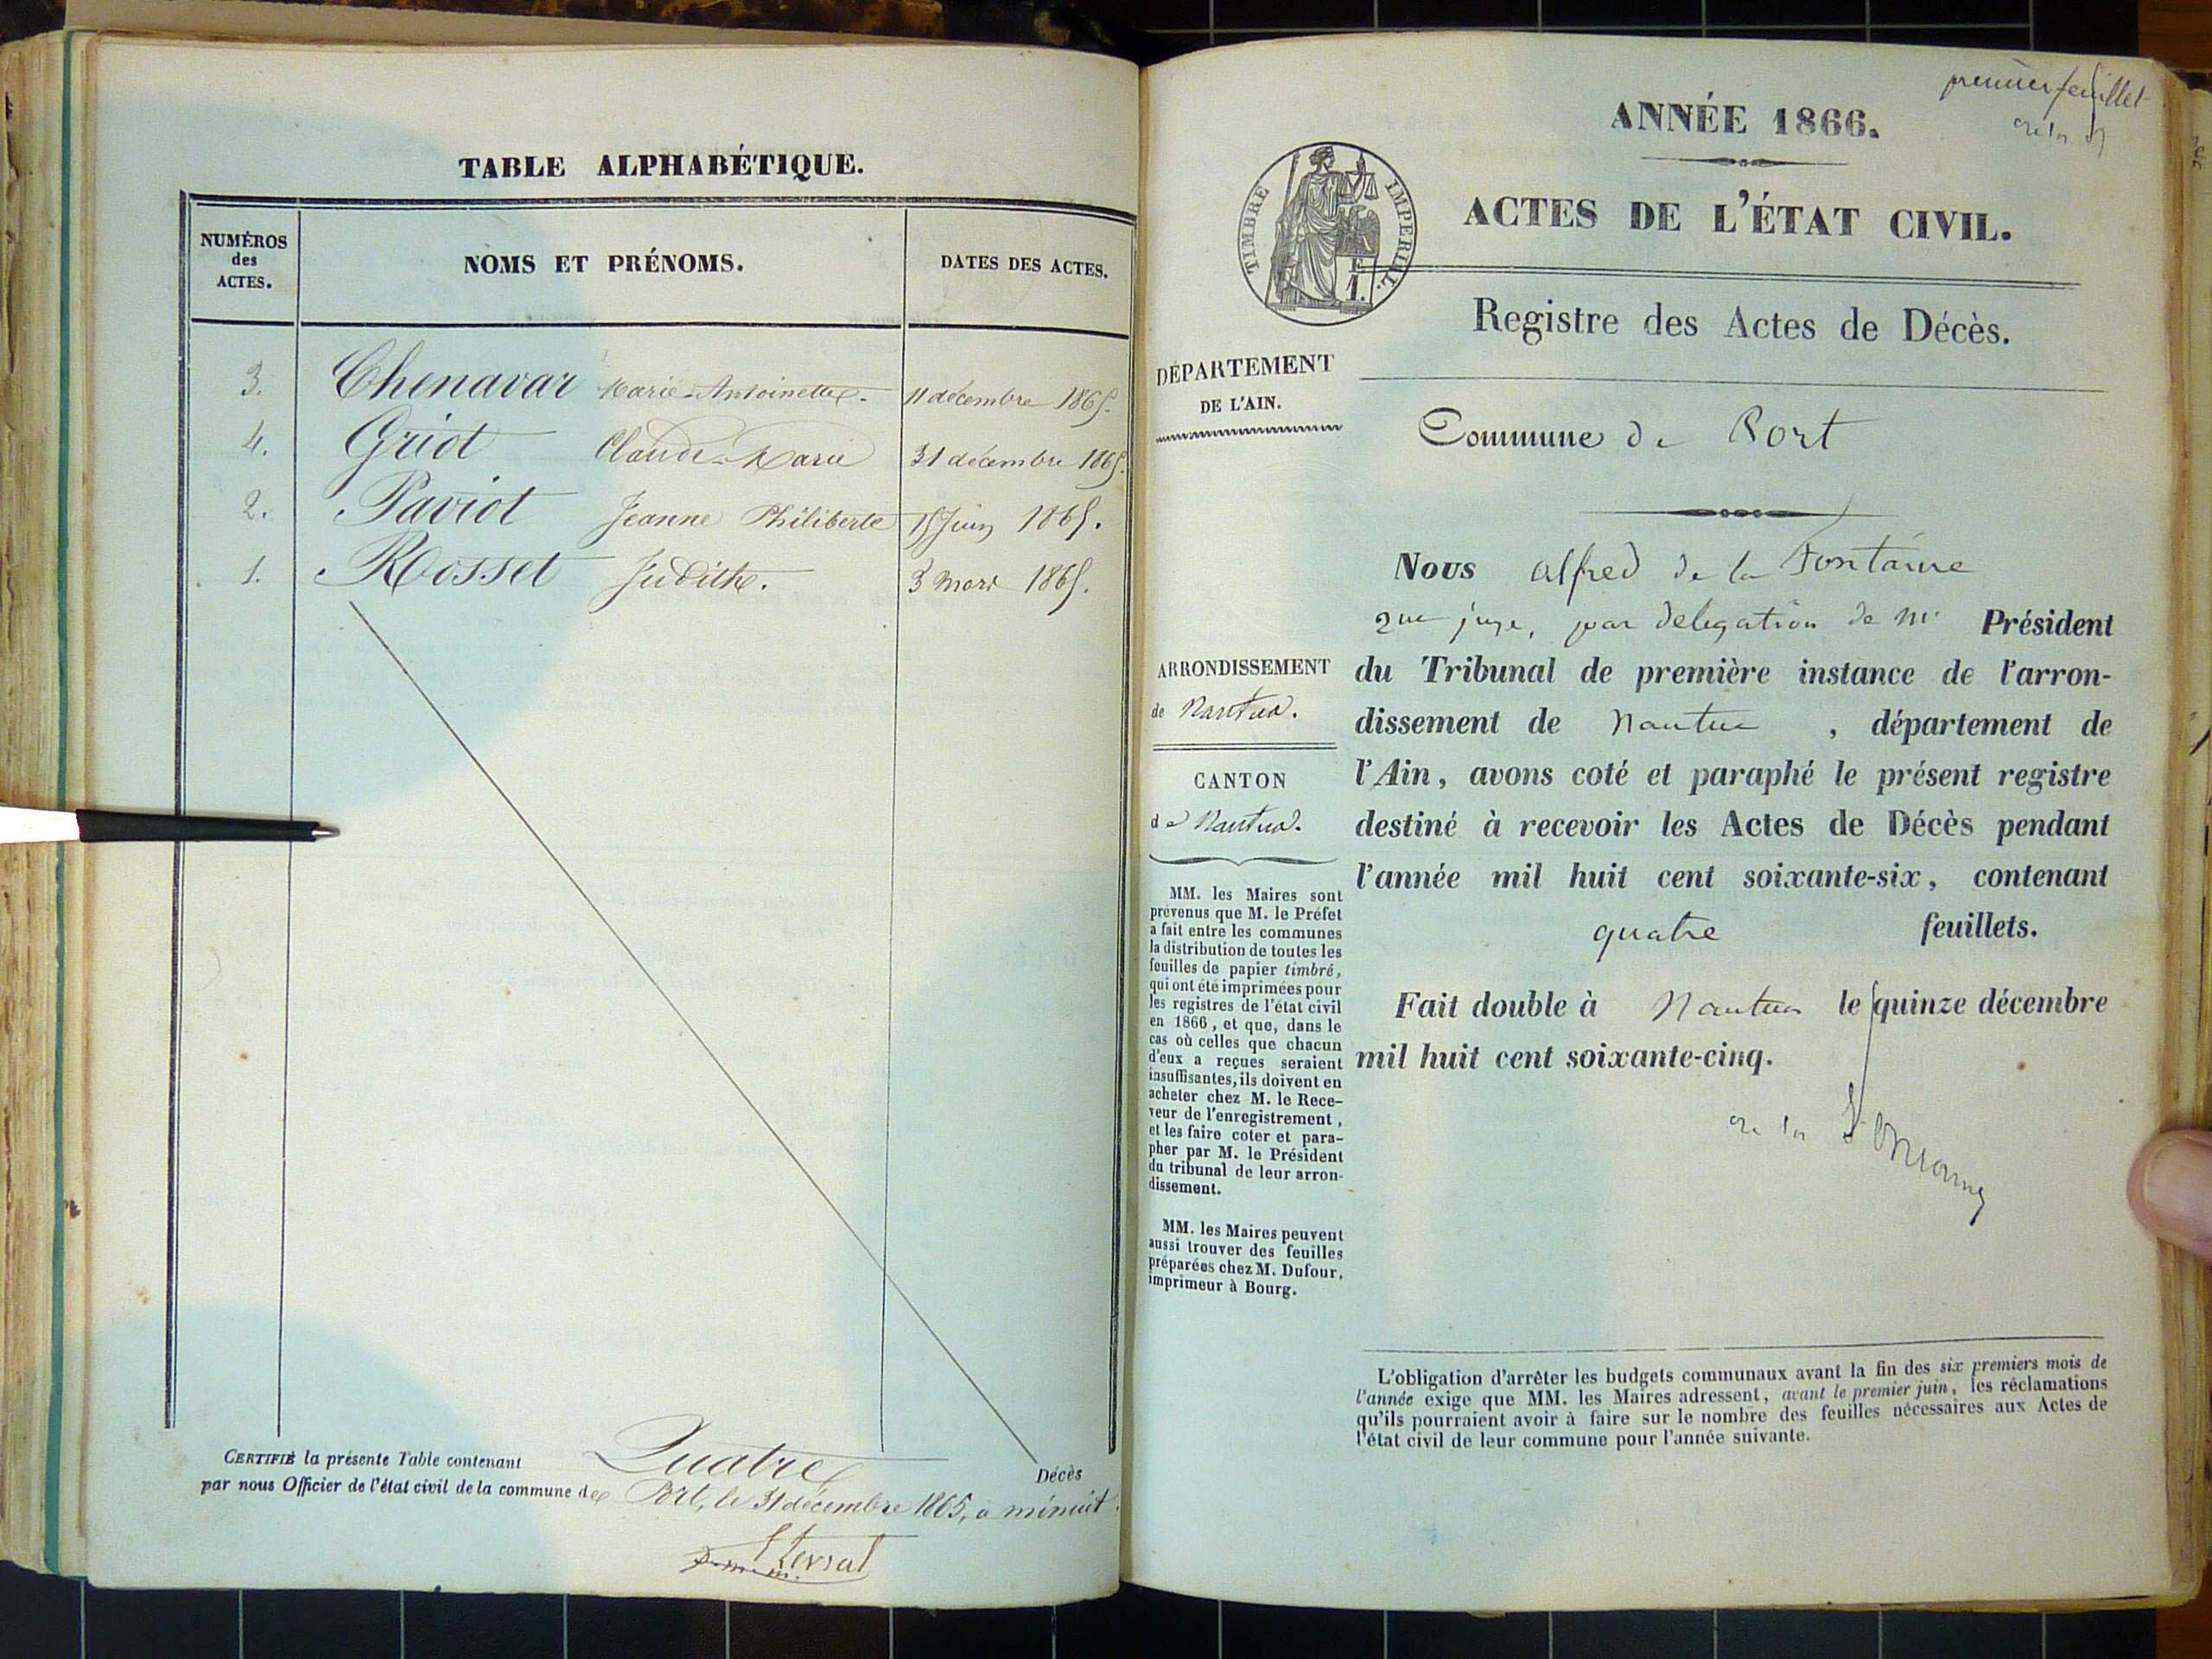 TABLE ALPHABÉTIQUE.
NUMÉROS
des
ACTES.
NOMS ET PRÉNOMS.
DATES DES ACTES.
3. Chenavar Marie-Antoinette. 11 décembre 1865.
4. Griot Claude-Marie 31 décembre 1865.
2. Paviot Jeanne Philiberte 15 Juin 1865.
1. Rosset Judith. 3 Mars 1865.
CERTIFIÉ la présente Table contenant Quatre Décès
par nous Officier de l'état civil de la commune de Port, le 31 décembre 1865, à minuit.
premier feuillet
ANNÉE 1866.
TIMBRE IMPERIAL.
1.
ACTES DE L'ÉTAT CIVIL.
Registre des Actes de Décès.
DÉPARTEMENT
DE L'AIN.
Commune de Port
ARRONDISSEMENT
de Nantua.
CANTON
de Nantua.
MM. les Maires sont
prévenus que M. le Préfet
a fait entre les communes
la distribution de toutes les
feuilles de papier timbré,
qui ont été imprimées pour
les registres de l'état civil
en 1866, et que, dans le
cas où celles que chacun
d'eux a reçues seraient
insuffisantes, ils doivent en
acheter chez M. le Rece-
veur de l'enregistrement,
et les faire coter et para-
pher par M. le Président
du tribunal de leur arron-
dissement.
MM. les Maires peuvent
aussi trouver des feuilles
préparées chez M. Dufour,
imprimeur à Bourg.
Nous alfred de la Fontaine
juge, par delegation de Mr Président
du Tribunal de première instance de l'arron-
dissement de nantua, département de
l'Ain, avons coté et paraphé le présent registre
destiné à recevoir les Actes de Décès pendant
l'année mil huit cent soixante-six, contenant
quatre feuillets.
Fait double à Nantua le quinze décembre
mil huit cent soixante-cinq.
L'obligation d'arrêter les budgets communaux avant la fin des six premiers mois de
l'année exige que MM. les Maires adressent, avant le premier juin, les réclamations
qu'ils pourraient avoir à faire sur le nombre des feuilles nécessaires aux Actes de
l'état civil de leur commune pour l'année suivante.